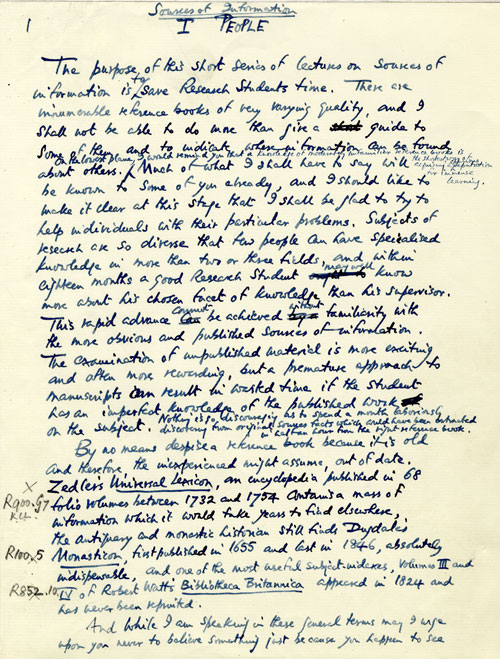 Sources of Information
1 I PEOPLE
The purpose of this short series of lectures on sources of
information is to save Research Students time. There are
innumerable reference books of very varying quality, and I
shall not be able to do more than give a short guide to
some of them and to indicate where information can be found
On the lowest plane, I would remind you that a knowledge of moderately unfamiliar reference books is
the shortest way of
acquiring a reputation
for immense
learning.
about others. Much of what I shall have to say will
be known to some of you already, and I should like to
make it clear at this stage that I shall be glad to try to
help individuals with their particular problems. Subjects of
research are so diverse that few people can have specialised
knowledge in more than two or three fields, and within
eighteen months a good Research Student may well know
more about his chosen facet of knowledge than his supervisor.
This rapid advance cannot be achieved without familiarity with
the more obvious and published sources of information.
The examination of unpublished material is more exciting
and often more rewarding, but a premature approach to
manuscripts can result in wasted time if the student
has an imperfect knowledge of the published work
on the subject. Nothing is so discouraging as to spend a month laboriously
discovering from original sources facts which could have been extracted
in half an hour from the right reference book.
By no means despise a reference book because it is old
and therefore, the inexperienced might assume, out of date.
X
Zedler's Universal Lexicon, an encyclopedia published in 68
R900.G7
folio volumes between 1732 and 1754 contains a mass of
information which it would take years to find elsewhere,
the antiquary and monastic historian still finds Dugdale's
R100.5 Monasticon, first published in 1655 and last in 1846, absolutely
indispensable, and one of the most useful subject-indexes, Volumes III and
R852.10 IV of Robert Watt's Bibliotheca Britannica appeared in 1824 and
has never been reprinted.
And while I am speaking in these general terms may I urge
upon you never to believe something just because you happen to see